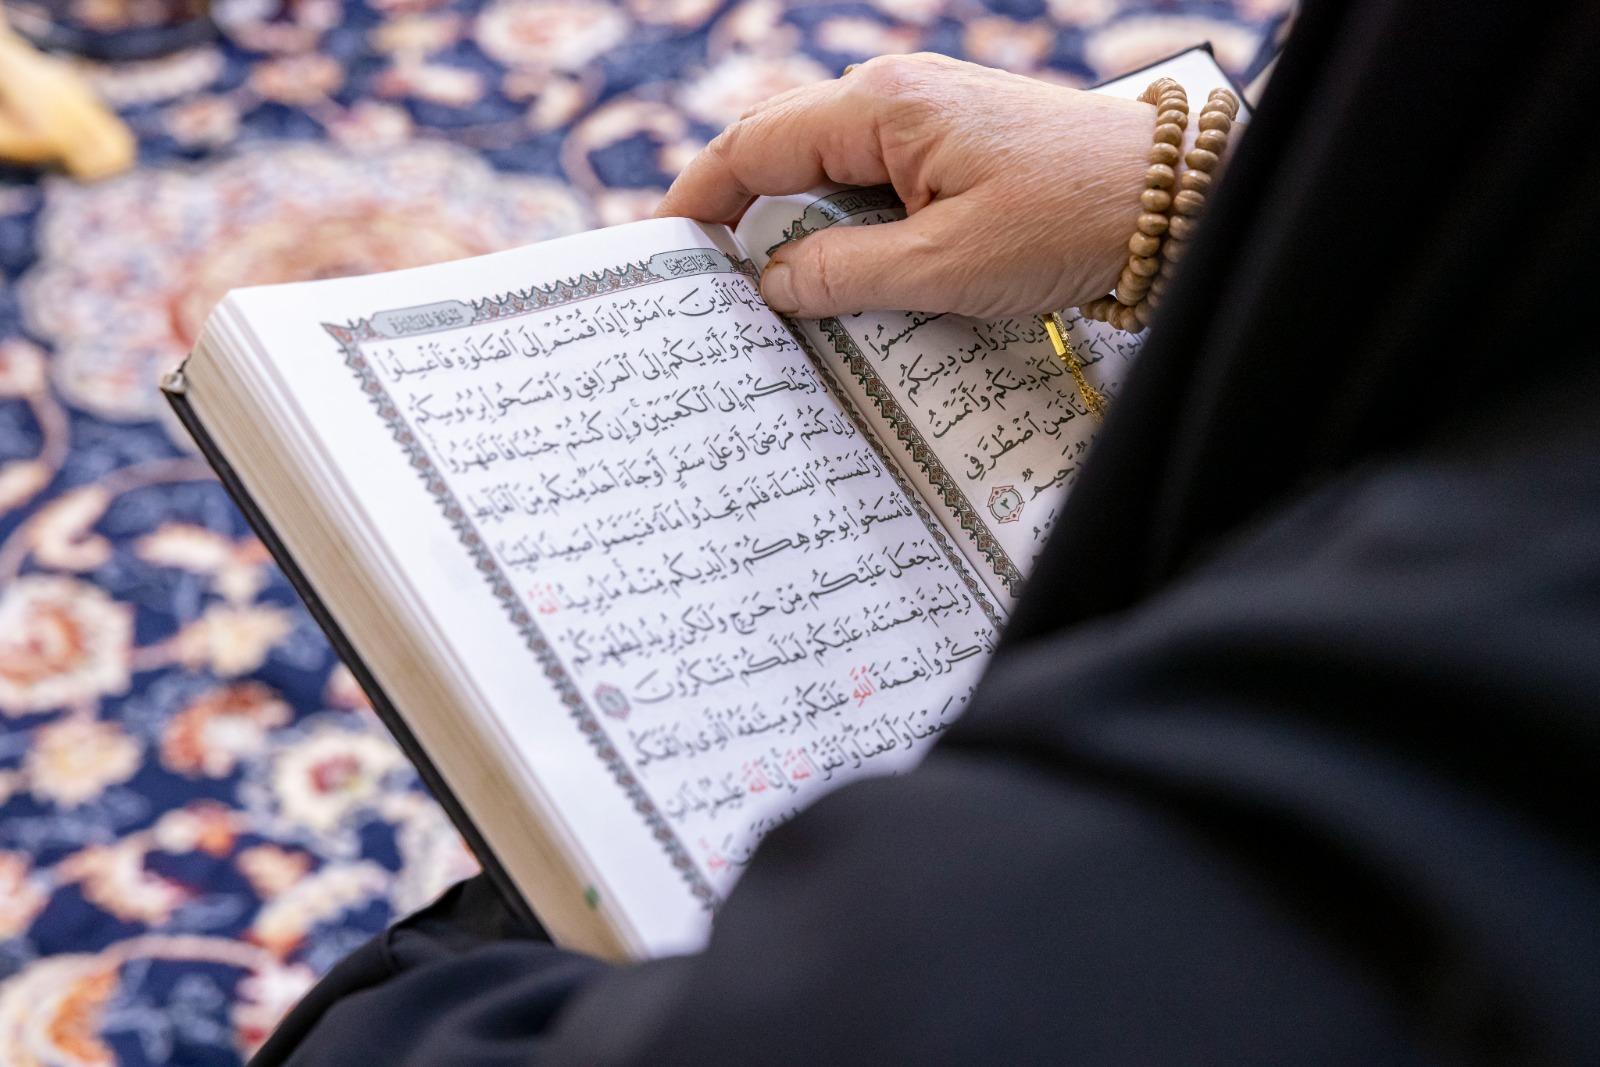 تَسْتَقْسِمُوا۟
كَفَرُوا۟ مِن دِينِكُمْ
لَكُمْ دِينَكُمْ وَأَتْمَمْتُ
فَمَنِ ٱضْطُرَّ فِى
رَّحِيمٌ ٣
الجزء السادس سورة المائدة
ٱلَّذِينَ ءَامَنُوٓا۟ إِذَا قُمْتُمْ إِلَى ٱلصَّلَوٰةِ فَٱغْسِلُوا۟
وُجُوهَكُمْ وَأَيْدِيَكُمْ إِلَى ٱلْمَرَافِقِ وَٱمْسَحُوا۟ بِرُءُوسِكُمْ
وَأَرْجُلَكُمْ إِلَى ٱلْكَعْبَيْنِ وَإِن كُنتُمْ جُنُبًا فَٱطَّهَّرُوا۟
وَإِن كُنتُم مَّرْضَىٰٓ أَوْ عَلَىٰ سَفَرٍ أَوْ جَآءَ أَحَدٌ مِّنكُم مِّنَ ٱلْغَآئِطِ
أَوْ لَٰمَسْتُمُ ٱلنِّسَآءَ فَلَمْ تَجِدُوا۟ مَآءً فَتَيَمَّمُوا۟ صَعِيدًا طَيِّبًا
فَٱمْسَحُوا۟ بِوُجُوهِكُمْ وَأَيْدِيكُم مِّنْهُ مَا يُرِيدُ ٱللَّهُ
لِيَجْعَلَ عَلَيْكُم مِّنْ حَرَجٍ وَلَٰكِن يُرِيدُ لِيُطَهِّرَكُمْ
وَلِيُتِمَّ نِعْمَتَهُۥ عَلَيْكُمْ لَعَلَّكُمْ تَشْكُرُونَ ٦
وَٱذْكُرُوا۟ نِعْمَةَ ٱللَّهِ عَلَيْكُمْ وَمِيثَٰقَهُ ٱلَّذِى وَاثَقَكُم
سَمِعْنَا وَأَطَعْنَا وَٱتَّقُوا۟ ٱللَّهَ إِنَّ ٱللَّهَ عَلِيمٌۢ بِذَاتِ